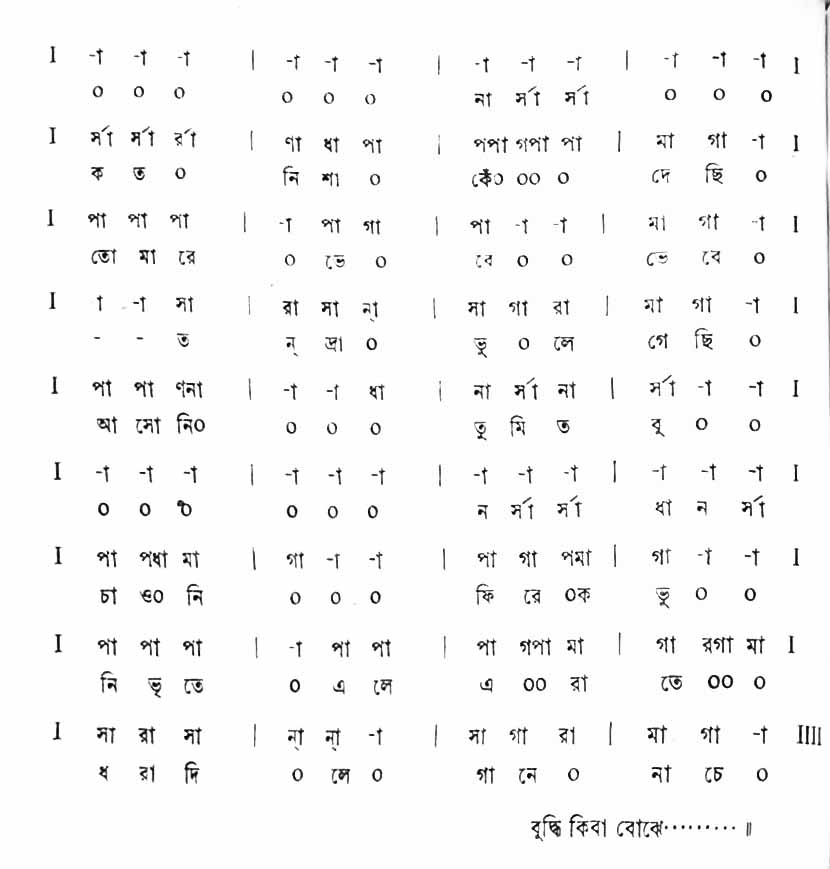 I -া -া -া | -া -া -া | -া -া -া | -া -া -া I
০ ০ ০ ০ ০ ০ না র্সা র্সা ০ ০ ০
I র্সা র্সা র্রা | ণা ধা পা | পপা গপা পা | মা গা -া I
ক ত ০ নি শা ০ কেঁ০ ০০ ০ দে ছি ০
I পা পা পা | -া পা গা | পা -া -া | মা গা -া I
তো মা রে ০ ভে ০ বে ০ ০ ভে বে ০
I া -া সা | রা সা ন্া | সা গা রা | মা গা -া I
- - ত ন্ দ্রা ০ ভু ০ লে গে ছি ০
I পা পা ণনা | -া -া ধা | না র্সা না | র্সা -া -া I
আ সো নি০ ০ ০ ০ তু মি ত বু ০ ০
I -া -া -া | -া -া -া | -া -া -া | -া -া -া I
০ ০ ০ ০ ০ ন র্সা র্সা ধা ন র্সা
I পা পধা মা | গা -া -া | পা গা পমা | গা -া -া I
চা ও০ নি ০ ০ ০ ফি রে ০ক ভু ০ ০
I পা পা পা | -া পা পা | পা গপা মা | গা রগা মা I
নি ভৃ তে ০ এ লে এ ০০ রা তে ০০ ০
I সা রা সা | ন্া ন্া -া | সা গা রা | মা গা -া IIII
ধ রা দি ০ লে ০ গা নে ০ না চে ০
বুদ্ধি কিবা বোঝে·········॥